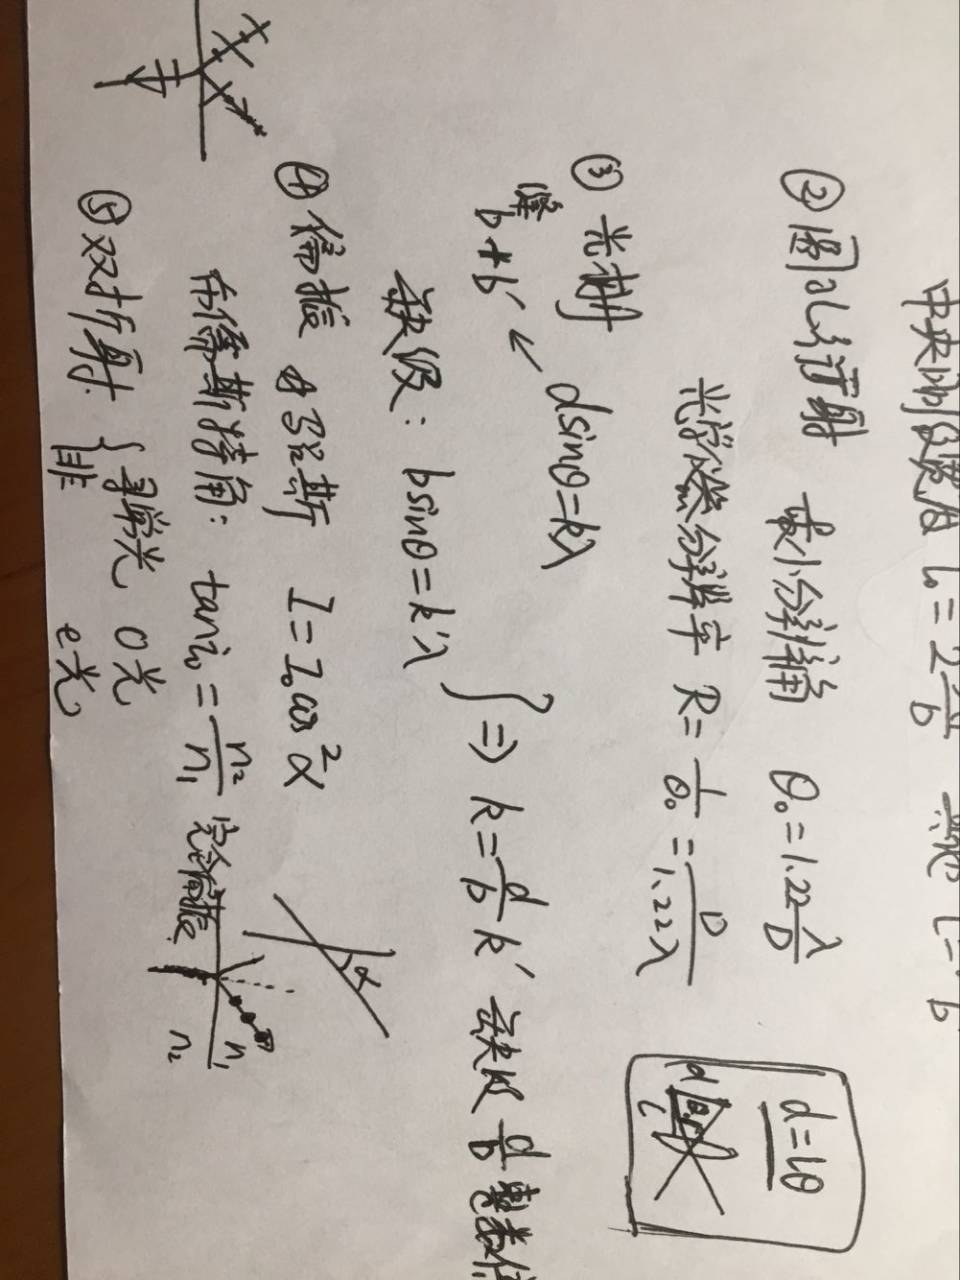 中央明纹宽度 l₀ = 2 λ/b
② 圆孔衍射 最小分辨角 θ₀ = 1.22 λ/D
d = lθ
光学仪器分辨率 R = 1/θ₀ = D/1.22λ
③ 光栅 dsinθ = kλ
缝 b + b′
缺级: bsinθ = k′λ } ⇒ k = d/b k′ 缺级 d/b 整数倍
④ 偏振 马吕斯 I = I₀cos²α
α
布儒斯特角: tan i₀ = n₂/n₁ 完全偏振
n₁
n₂
⑤ 双折射: { 寻常光 O光
非 e光